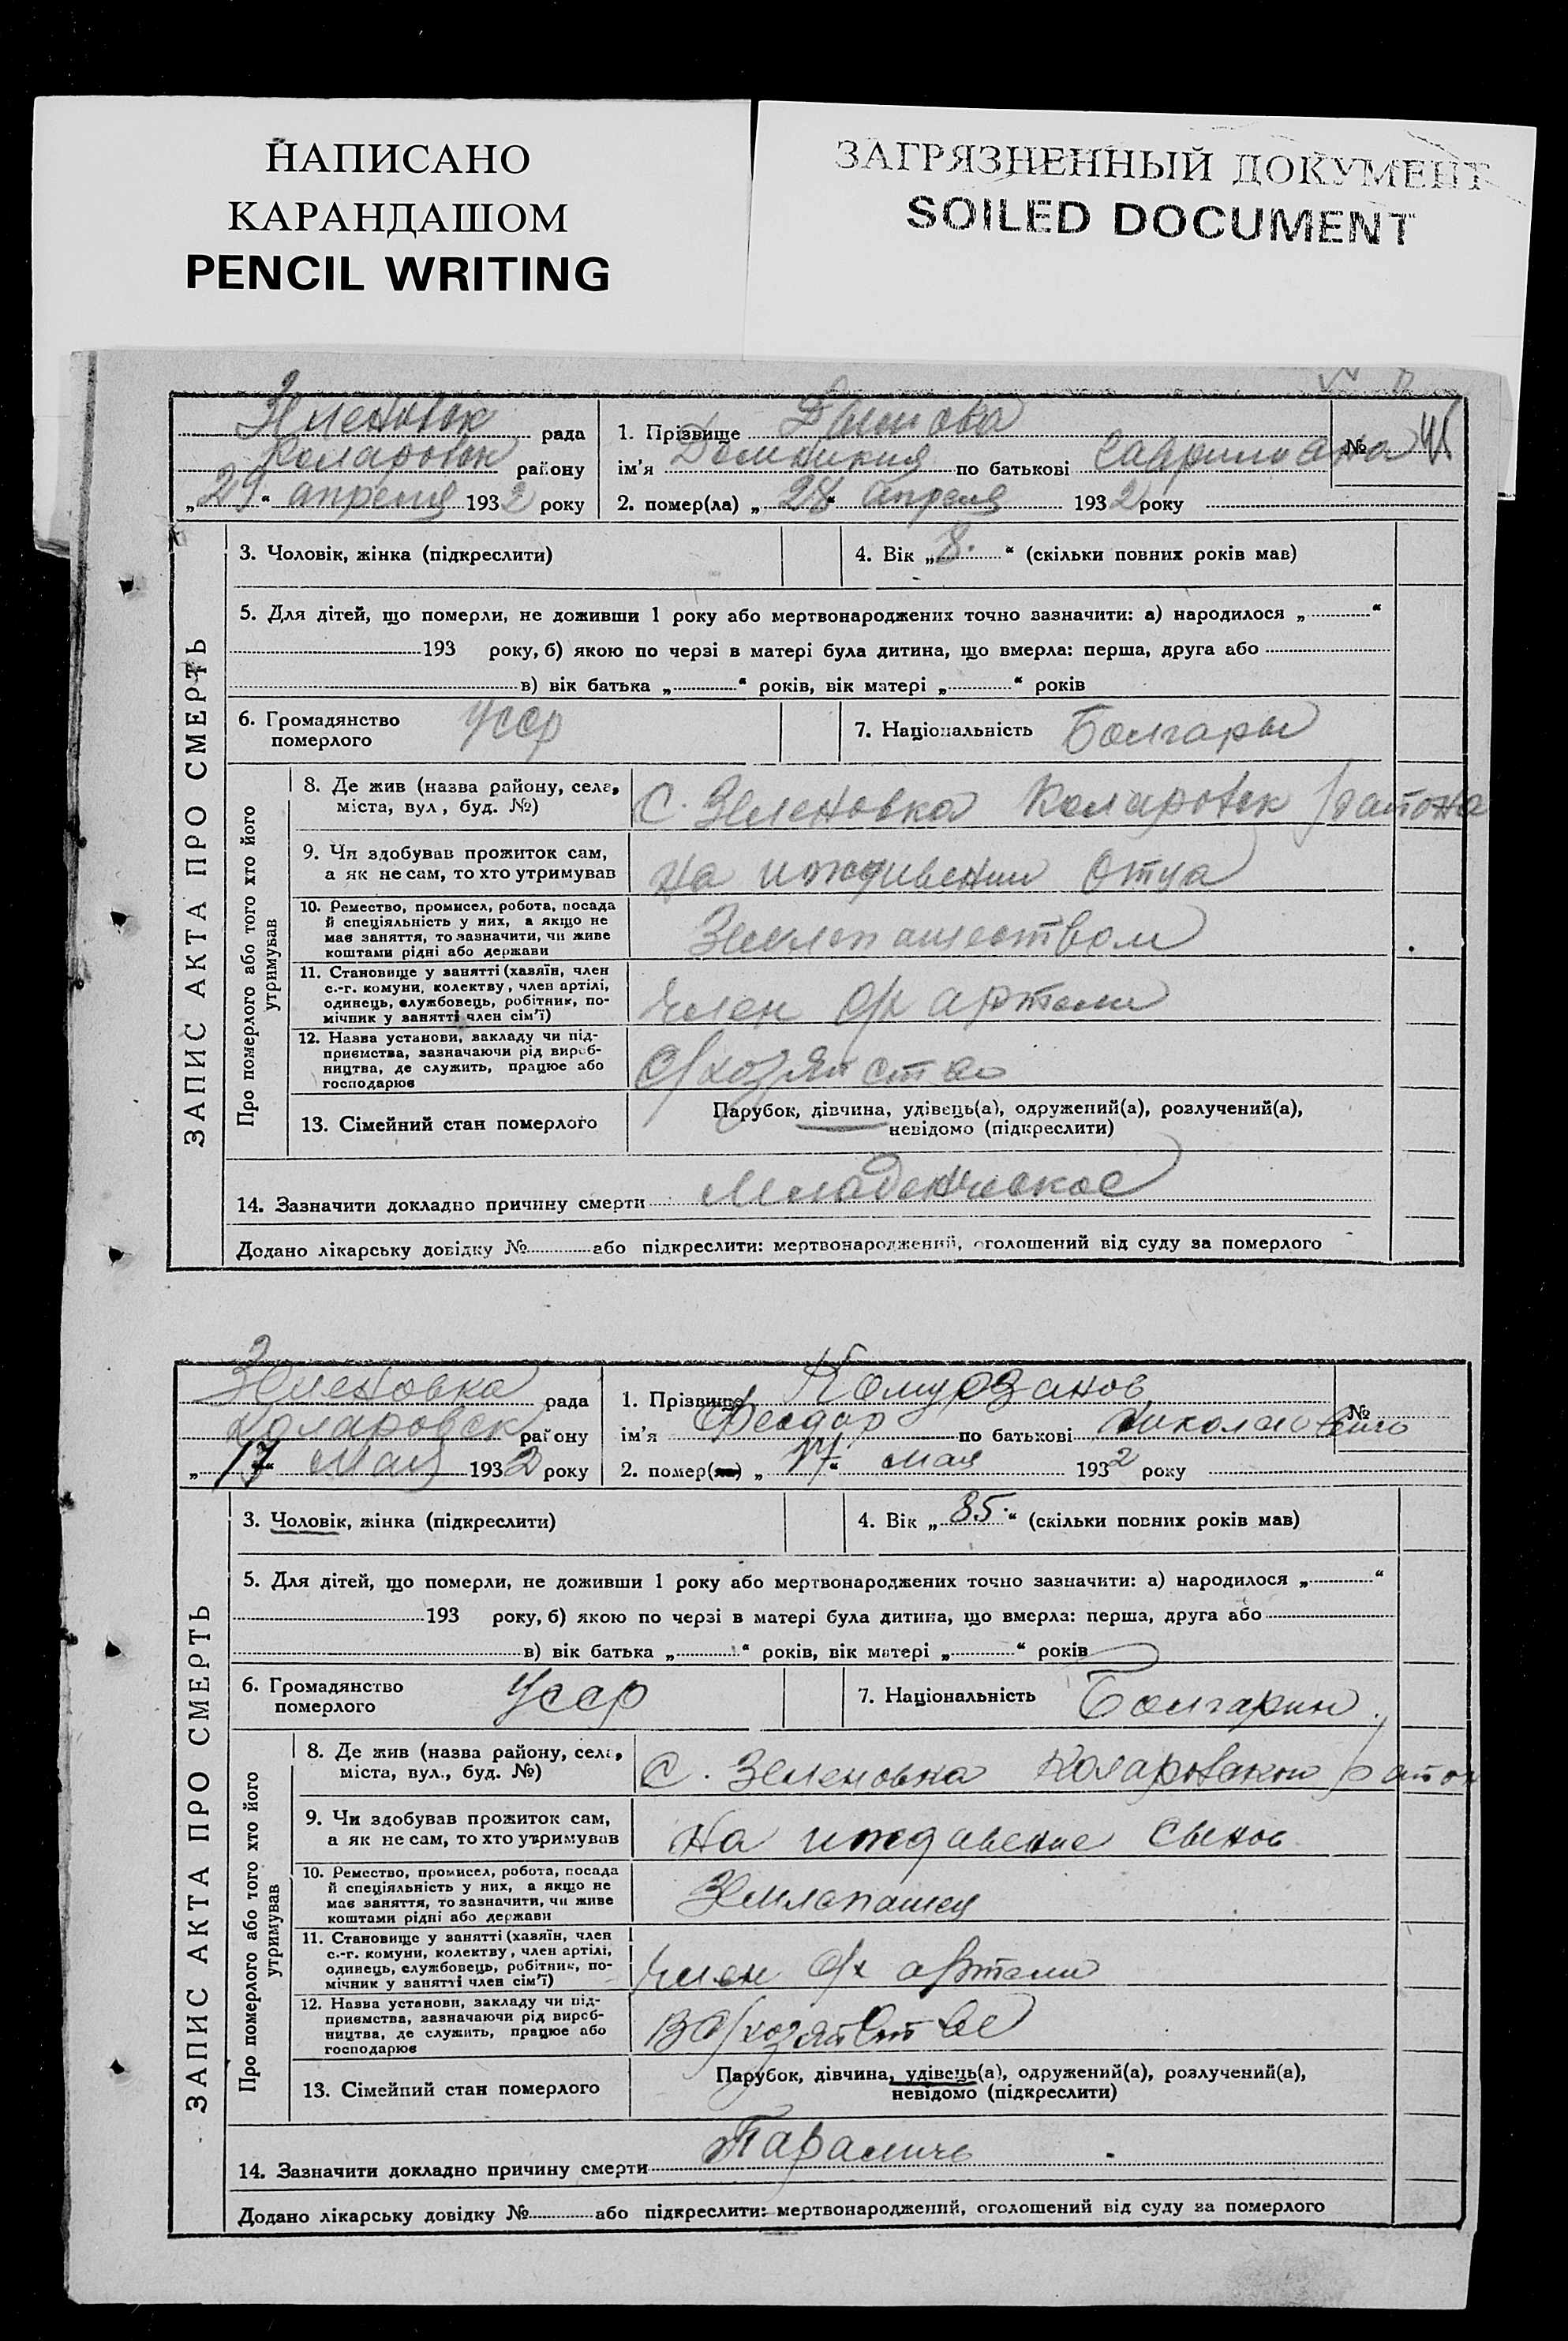 НАПИСАНО
КАРАНДАШОМ
PENCIL WRITING
ЗАГРЯЗНЕННЫЙ ДОКУМЕНТ
SOILED DOCUMENT
ЗАПИС АКТА ПРО СМЕРТЬ
Зеленовск рада
Коларовск району
„29“ апреля 1932 року
1. Прізвище Димова №
ім'я Домникия по батькові
2. помер(ла) „28“ апреля 1932 року
3. Чоловік, жінка (підкреслити)
4. Вік „8.“ (скільки повних років мав)
5. Для дітей, що померли, не доживши 1 року або мертвонароджених точно зазначити: а) народилося „ “
193 року, б) якою по черзі в матері була дитина, що вмерла: перша, друга або
в) вік батька „ “ років, вік матері „ “ років
6. Громадянство померлого Усср
7. Національність Болгары
Про померлого або того хто його утримував
8. Де жив (назва району, села,
міста, вул., буд. №) С. Зеленовка Коларовск района
9. Чи здобував прожиток сам,
а як не сам, то хто утримував на иждивении отца
10. Ремество, промисел, робота, посада
й спеціяльність у них, а якщо не
має заняття, то зазначити, чи живе
коштами рідні або держави Землепашеством
11. Становище у занятті (хазяїн, член
с.-г. комуни, колектву, член артілі,
одинець, службовець, робітник, по-
мічник у занятті член сім'ї) член с/х артели
12. Назва установи, закладу чи під-
приємства, зазначаючи рід вироб-
ництва, де служить, працює або
господарює С/хозяйство
13. Сімейний стан померлого Парубок, дівчина, удівець(а), одружений(а), розлучений(а),
невідомо (підкреслити)
14. Зазначити докладно причину смерти Младенческое
Додано лікарську довідку № або підкреслити: мертвонароджений, оголошений від суду за померлого
ЗАПИС АКТА ПРО СМЕРТЬ
Зеленовка рада
Коларовск району
„17“ Мая 1932 року
1. Прізвище Комурзанов №
ім'я Феодор по батькові Николаевич
2. помер(ла) „17“ мая 1932 року
3. Чоловік, жінка (підкреслити)
4. Вік „85.“ (скільки повних років мав)
5. Для дітей, що померли, не доживши 1 року або мертвонароджених точно зазначити: а) народилося „ “
193 року, б) якою по черзі в матері була дитина, що вмерла: перша, друга або
в) вік батька „ “ років, вік матері „ “ років
6. Громадянство померлого Усср
7. Національність Болгарин
Про померлого або того хто його утримував
8. Де жив (назва району, села,
міста, вул., буд. №) С. Зеленовка Коларовского район
9. Чи здобував прожиток сам,
а як не сам, то хто утримував На иждивение сынов
10. Ремество, промисел, робота, посада
й спеціяльність у них, а якщо не
має заняття, то зазначити, чи живе
коштами рідні або держави Землепашец
11. Становище у занятті (хазяїн, член
с.-г. комуни, колектву, член артілі,
одинець, службовець, робітник, по-
мічник у занятті член сім'ї) член с/х артели
12. Назва установи, закладу чи під-
приємства, зазначаючи рід вироб-
ництва, де служить, працює або
господарює В с/хозяйстве
13. Сімейний стан померлого Парубок, дівчина, удівець(а), одружений(а), розлучений(а),
невідомо (підкреслити)
14. Зазначити докладно причину смерти Паралич
Додано лікарську довідку № або підкреслити: мертвонароджений, оголошений від суду за померлого